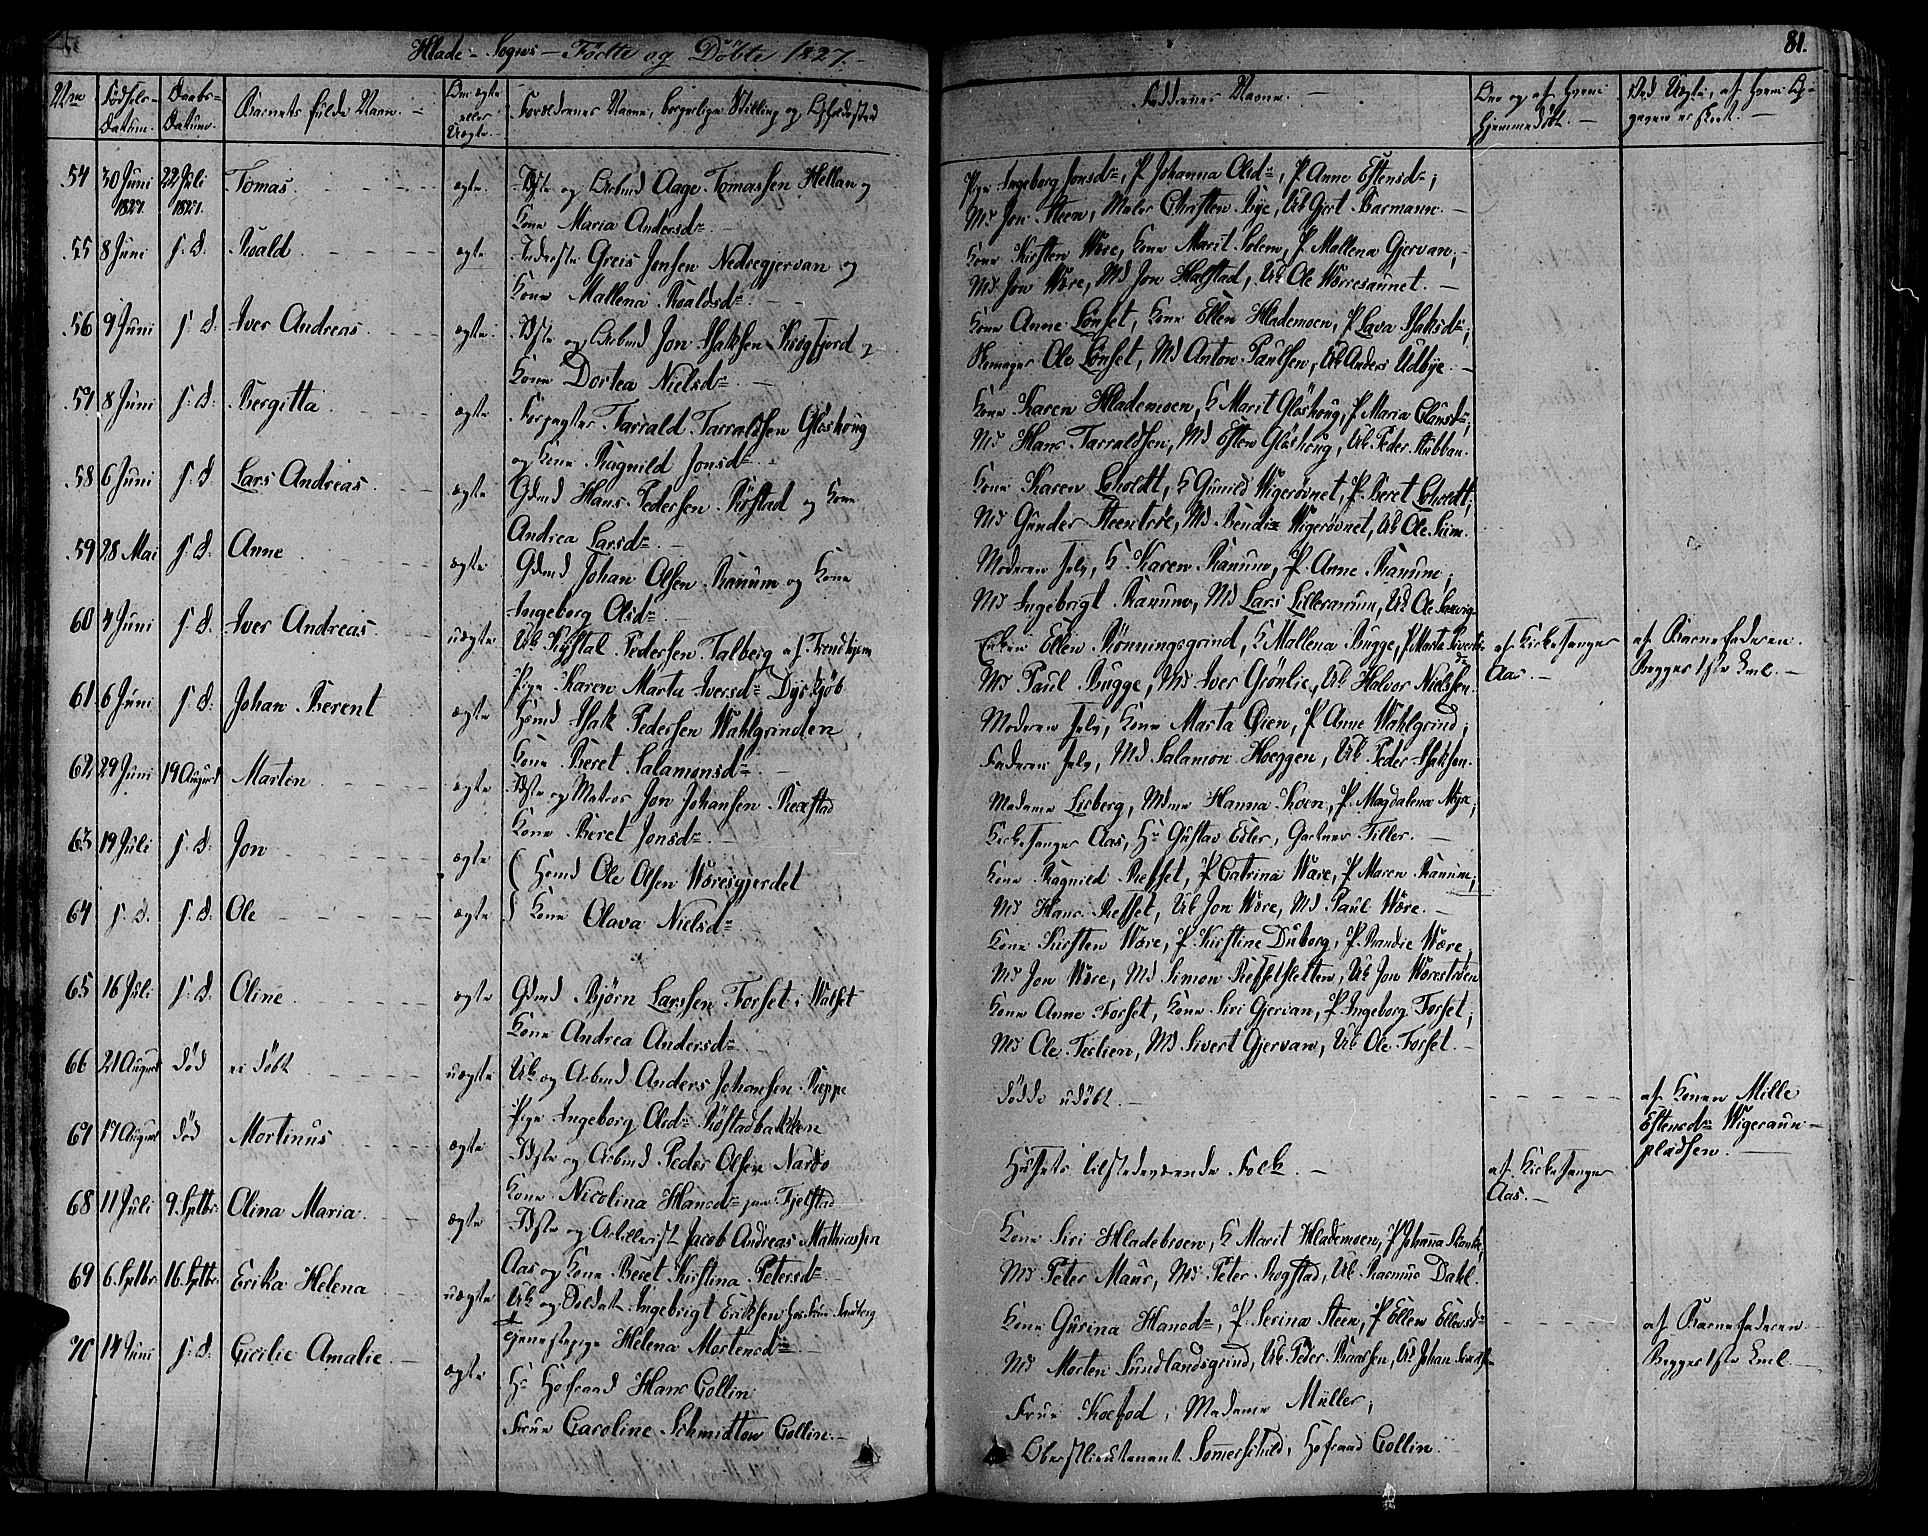 Hlade-Sogns-Födte og Döbte 1827.
81.
Nro Fødsels-Datum. Daabs-Datum. Barnets fulde Navn. Om ægte eller Uægte. Forældrenes Navne, borgerlige Stilling og Opholdssted
Faddernes Navne. Om og af hvem hjemmedöbt. Ved Uægte, af hvem Opgaven er skeet.
54 30 Juni 1827. 22 Juli 1827. Tomas ægte Aage Tomassen Hellan og
Kone Maria Andersdr
Pige Ingeborg Jonsdr, P. Johanna Olsdr, P. Anne Estensdr;
Md Jon Steen, Maler Christen Bye, Uk Gjert Barmann.
55 8 Juni s. d. Roald ægte Greis Jonsen Nedregjervan og
Kone Mallena Roaldsdr
Kone Kirsten Være, Kone Marit Solem, P. Mallena Gjervan,
Md Jon Være, Md Jon Halstad, Uk Ole Wæresaunet.
56 9 Juni s. d. Iver Andreas ægte Jon Isaksen Krogfjord og
Kone Dortea Nielsdr
Kone Anne Lönset, Kone Ellen Hlademoen, P. Lava Isaksdr;
Ole Lönset, Md Anton Paulsen, Uk Anders Udbye.
57 8 Juni s. d. Bergitta ægte Forpagter Tarrald Tarraldsen Glöshoug
og Kone Ragnild Jonsdr
Kone Karen Hlademoen, K. Marit Glöshoug, P. Maria Clausdr;
Md Hans Tarraldsen, Md Esten Glöshoug, Uk Peder Stubban.
58 6 Juni s. d. Lars Andreas ægte Gdmd Hans Pedersen Röstad og Kone
Andrea Larsdr
Kone Karen Loholdt, K. Gunild Wigerövnet, P. Beret Loholdt;
Md Gunder Steentrøe, Md Bendix Wigerövnet, Uk Ole Siim.
59 28 Mai s. d. Anne ægte Gdmd Johan Olsen Ranum og Kone
Ingeborg Olsdr
Moderen selv, K. Karen Ranum, P. Anne Ranum;
Md Ingebrigt Ranum, Md Lars Lilleranum, Uk Ole
60 4 Juni s. d. Iver Andreas uægte Uk Kristal Pedersen Talberg af Trondhjem
Pige Karen Marta Iversdr Dyskjöb
Enken Ellen Rönningsgrind, K. Mallena Bugge, P. Marta Sivertsdr
Md Paul Bugge, Md Iver Grönlie, Uk Halvor Nielssen.
af Kirkesanger Aas.
af Barnefaderen. Begges 1ste Leml.
61 6 Juni s. d. Johan Berent ægte Hsmd Isak Pedersen Wahlgrinden
Kone Beret Salamonsdr
Moderen selv, Kone Marta Öien, P. Anne Wahlgrind;
Faderen selv, Md Salamon Hoeggen, Uk Peder Isaksen.
62 29 Juni 19 August Marten ægte og Matros Jon Johansen Rexstad
Kone Beret Jonsdr
Madame Lisberg, Mdme Hanna Koen, P. Magdalena
Kirkesanger Aas, Hr Gustav Edler, Gartner Tiller.
63 19 Juli s. d. Jon ægte Hsmd Ole Olsen Wæresgjerdet
Kone Ragnild Refset, P. Catrina Være, P. Maren Ranum;
Md Hans Refset, Uk Jon Være, Md Paul Være.
64 s. d. s. d. Ole ægte Kone Olava Nielsdr
Kone Kirsten Være, P. Kirstine Duborg, P. Randie Være;
Md Jon Være, Md Simon Refsetsletten, Uk Jon Wæreströen
65 16 Juli s. d. Oline ægte Gdmd Björn Larssen Forset i Walset
Kone Andrea Andersdr
Kone Anne Forset, Kone Siri Gjervan, P. Ingeborg Forset;
Md Ole Teslien, Md Sivert Gjervan, Uk Ole Forset.
66 21 August död ei döbt uægte Uk og Arbmd Anders Johansen Reppe
Pige Ingeborg Olsdr Röstadbakken
Döde udöbt.
af Konen Mille Estensdr Wigeraunpladsen.
67 17 August död Mortinus ægte og Arbmd Peder Olsen Nardo
Kone Nicolina Hansdr Fjelstad
Husets tilstedeværende Folk.
af Kirkesanger Aas.
68 11 Juli 9. Septbr. Olina Maria ægte og Artillerist Jacob Andreas Mathiassen
Aas og Kone Beret Kirstina Petersdr
Kone Siri Hladebroen, K. Marit Hlademoen, P. Johanna
Md Peter Maur, Md Peter Rogstad, Uk Rasmus Dahl.
69 6. Septbr. 16. Septbr. Erika Helena uægte Uk og Soldat Ingebrigt Eriksen
tjenestepige Helena Mortensdr
Kone Gurina Hansdr, P. Serina Steen, P. Ellen Ellevsdr
Md Morten Sundlandsgrind, Uk Peder Baarsen, Uk Johan
af Barnefaderen Begges 1ste Leml.
70 14 Juni s. d. Cicilie Amalie ægte Hr Hofraad Hans Collin
Frue Caroline Schmidtow Collin.
Frue Koefod, Madame Müller;
Oberstlieutenant Somerschild, Hofraad Collin.